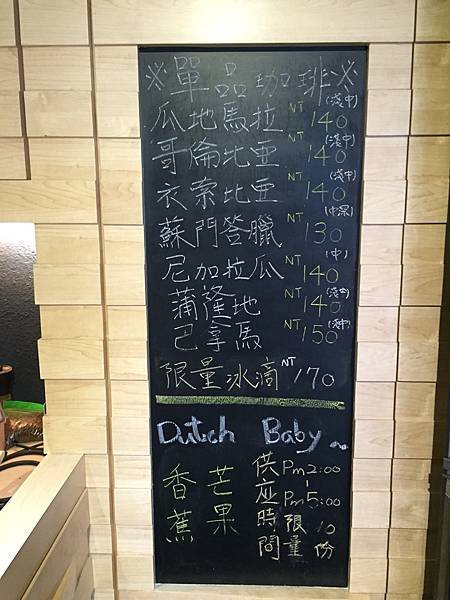 ※單品咖啡※
瓜地馬拉 NT 140 (淺中)
哥倫比亞 NT 140 (淺中)
衣索比亞 NT 140 (淺中)
蘇門答臘 NT 130 (中深)
尼加拉瓜 NT 140 (中)
蒲隆地 NT 140 (淺中)
巴拿馬 NT 150 (淺中)
限量冰滴 NT 170
Dutch Baby~
香蕉
芒果
供应時間
Pm2:00
-
Pm5:00
限量10份